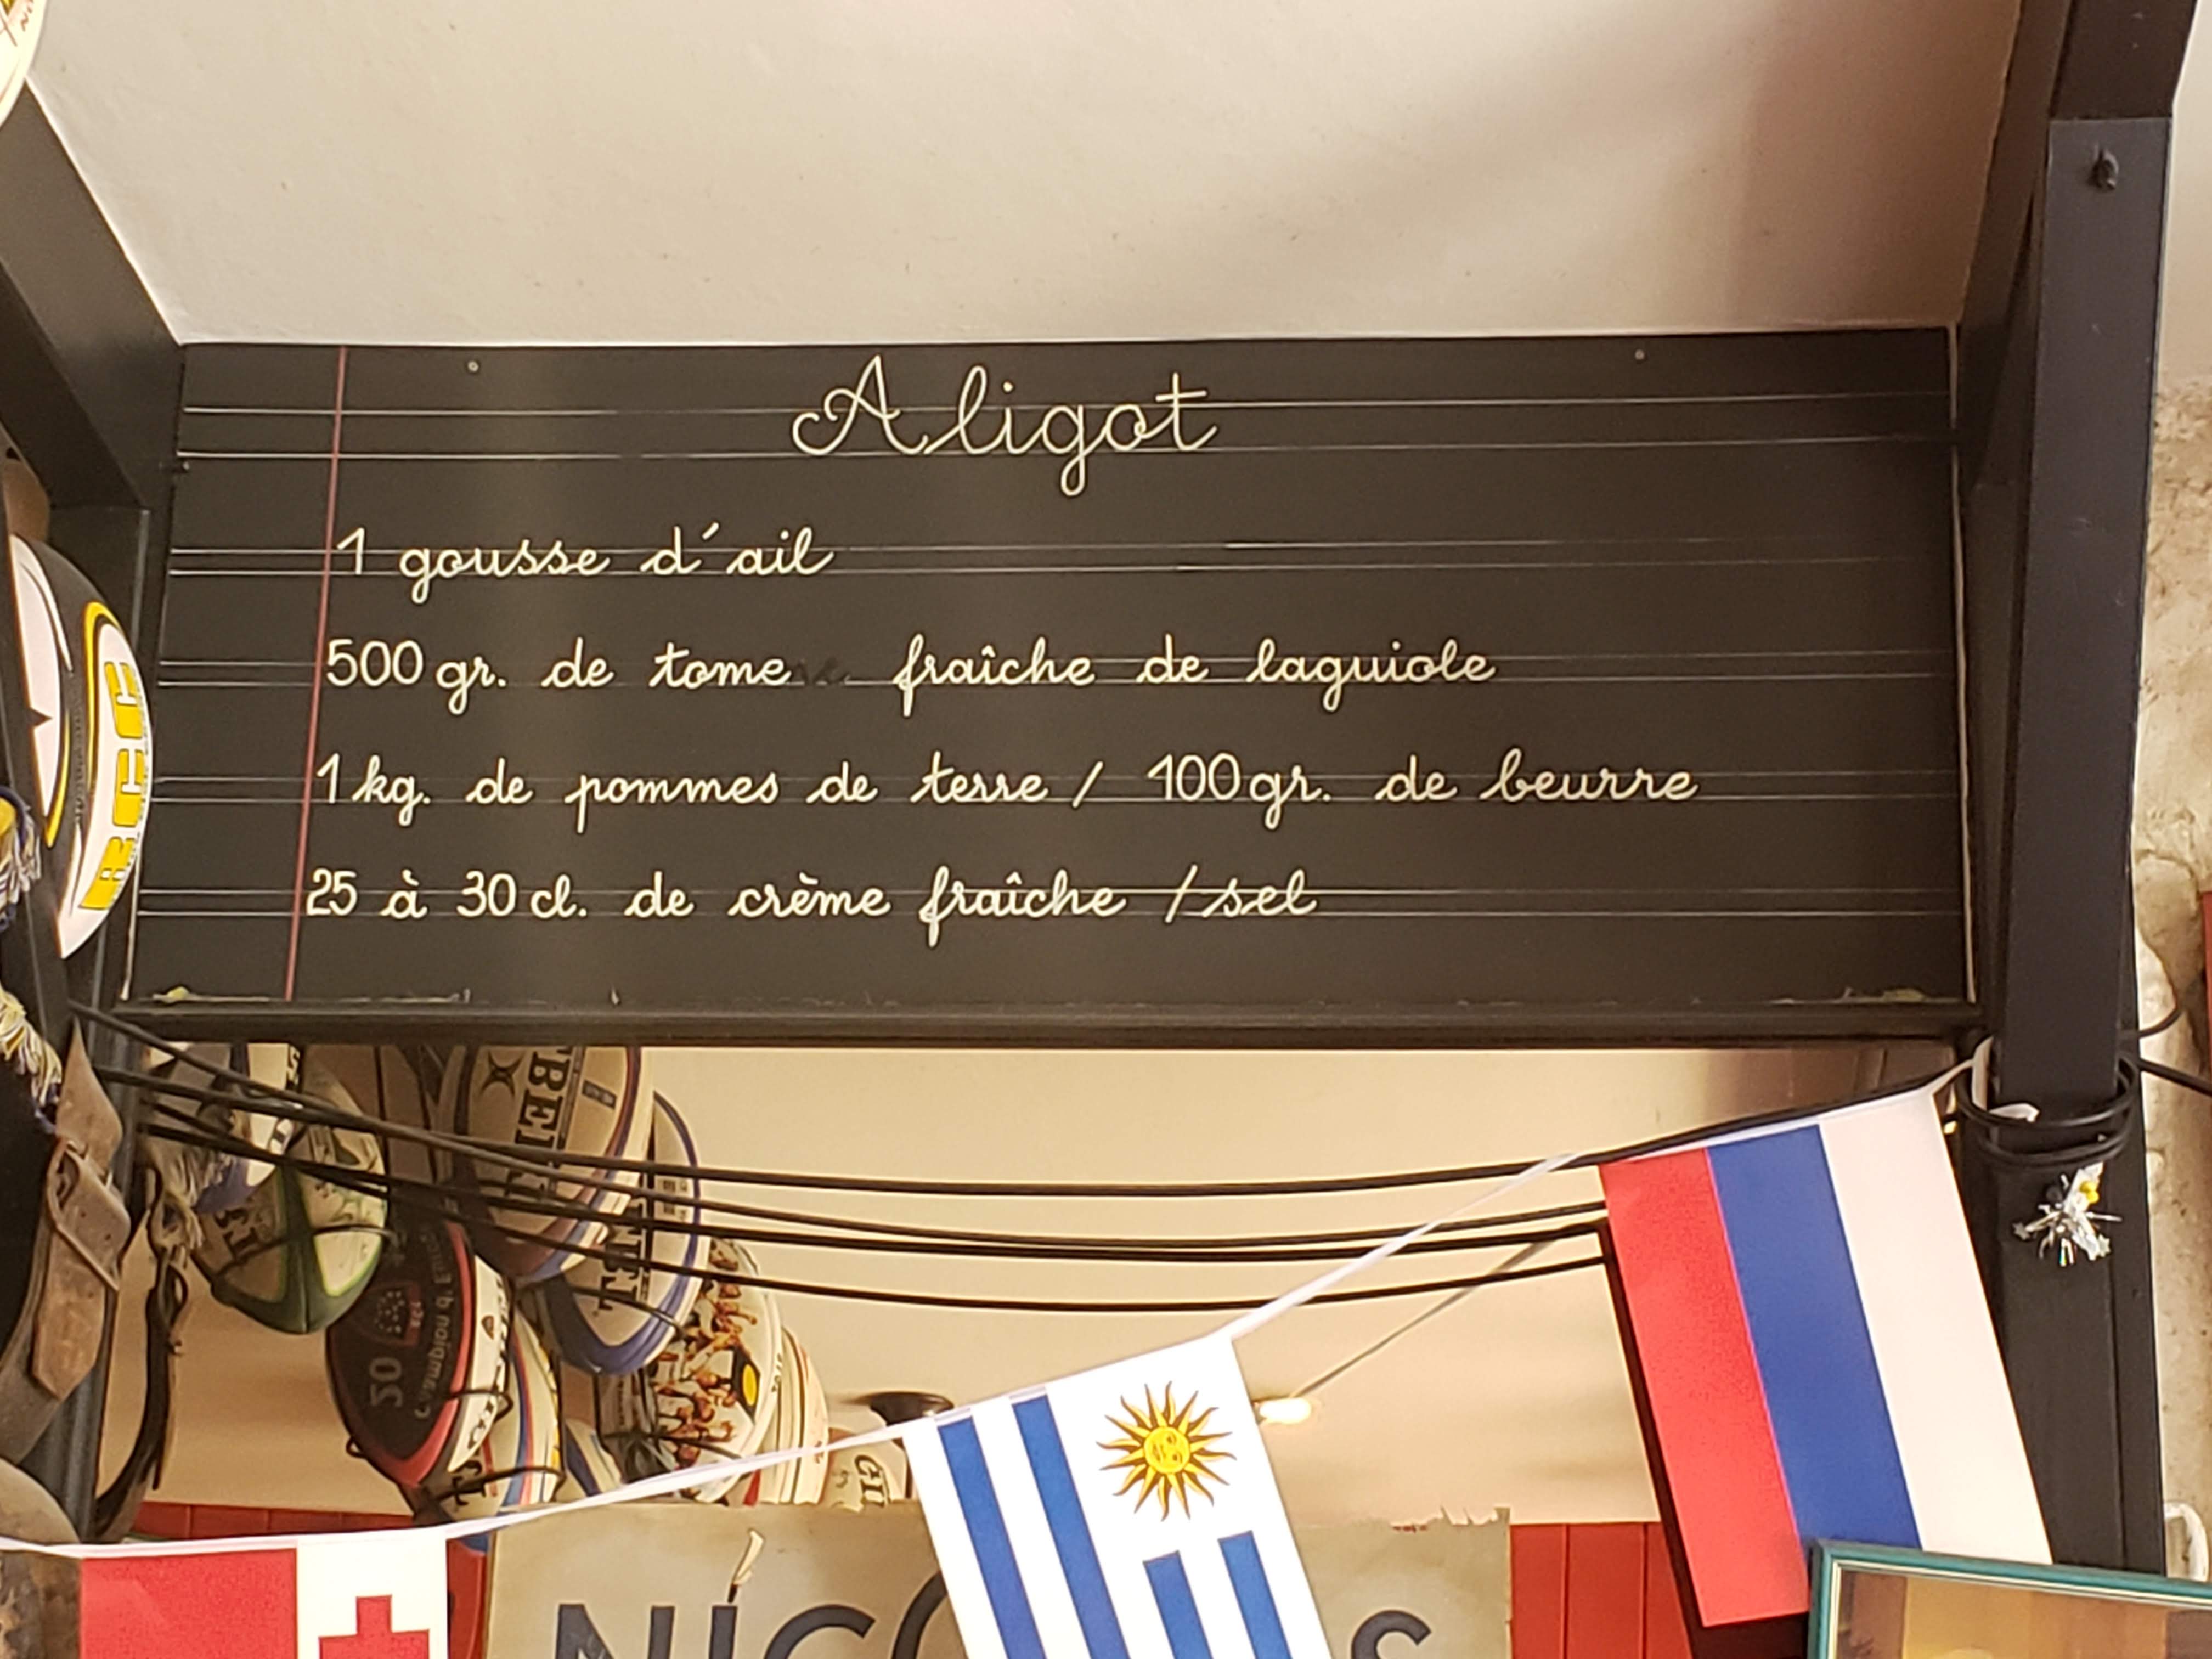 Aligot
1 gousse d'ail
500 gr. de tome fraîche de laguiole
1 kg. de pommes de terre / 100 gr. de beurre
25 à 30 cl. de crème fraîche / sel
GILBERT
20
Champion d'Europe